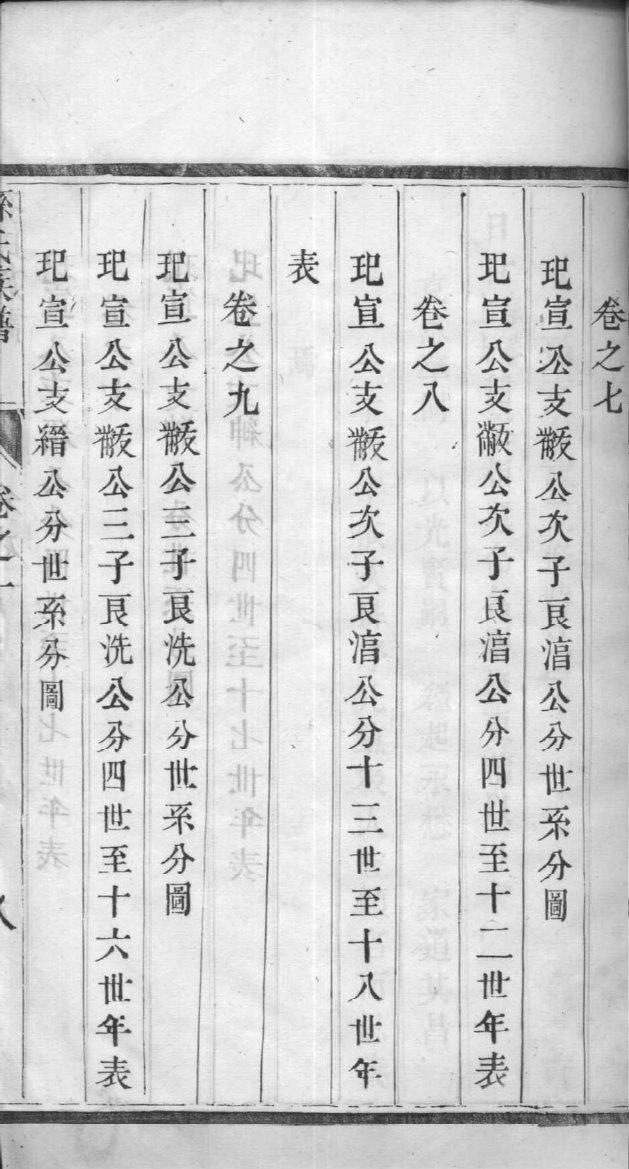 卷之七
玘宣公支黻公次子良㴠公分世系分圖
玘宣公支黻公次子良㴠公分四世至十二世年表
卷之八
玘宣公支黻公次子良㴠公分十三世至十八世年
表
卷之九
玘宣公支黻公三子良洗公分世系分圖
玘宣公支黻公三子良洗公分四世至十六世年表
玘宣公支縉公分世系分圖
氏族譜 卷之一 八